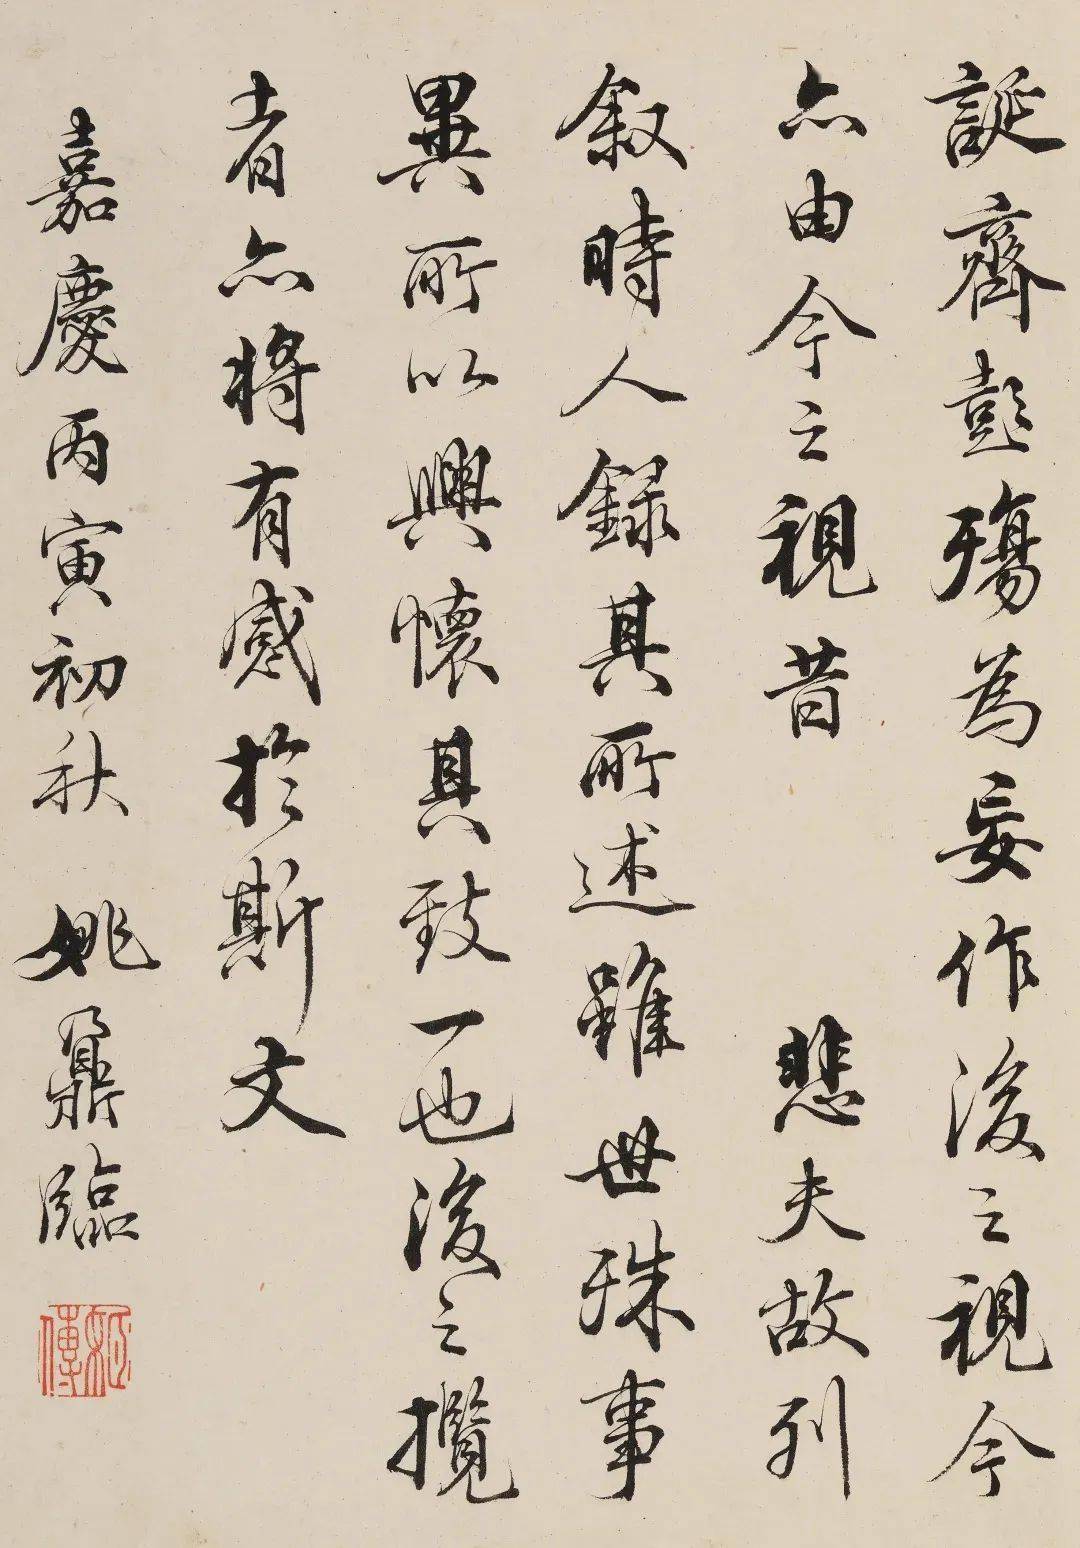 誕齊彭殤為妄作後之視今
亦由今之視昔 悲夫故列
叙時人録其所述雖世殊事
異所以興懷其致一也後之攬
者亦將有感於斯文
嘉慶丙寅初秋 姚鼐臨
姬傳